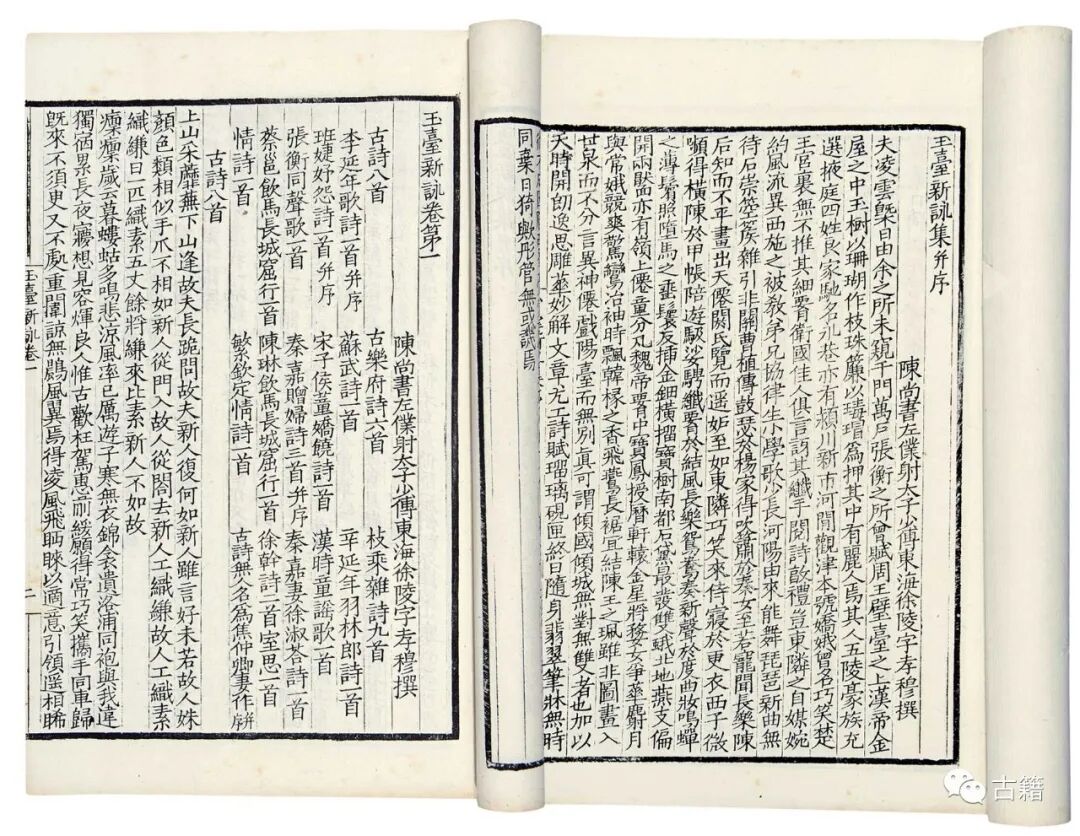 玉臺新詠集并序
陳尚書左僕射太子少傅東海徐陵字孝穆撰
夫凌雲槩日由余之所未窺千門萬戸張衡之所曾賦周王璧臺之上漢帝金
屋之中玉樹以珊瑚作枝珠簾以瑇瑁爲押其中有麗人焉其人五陵豪族充
選掖庭四姓良家馳名永巷亦有潁川新市河間觀津本號嬌娥曾名巧笑楚
王宮裏無不推其細腰衛國佳人俱言訝其纖手閱詩敦禮豈東隣之自媒婉
約風流異西施之被教弟兄協律生小學歌少長河陽由來能舞琵琶新曲無
待石崇箜篌雜引非關曹植傳鼓瑟於楊家得吹簫於秦女至若寵聞長樂陳
后知而不平畫出天僊閼氏覽而遥妒至如東隣巧笑來侍寢於更衣西子微
顰得橫陳於甲帳陪遊馺娑騁纖腰於結風長樂鴛鴦奏新聲於度曲妝鳴蟬
之薄鬢照墮馬之垂鬟反插金鈿橫抽寶樹南都石黛最發雙蛾北地燕支偏
開兩靨亦有嶺上僊童分丸魏帝腰中寶鳳授曆軒轅金星將婺女爭華麝月
與常娥競爽驚鸞冶袖時飄韓掾之香飛鷰長裾宜結陳王之珮雖非圖畫入
甘泉而不分言異神僊戲陽臺而無別眞可謂傾國傾城無對無雙者也加以
天時開朗逸思雕華妙解文章尤工詩賦瑠璃硯匣終日隨身翡翠筆牀無時
同棄日猗與彤管無或譏焉
玉臺新詠卷第一
陳尚書左僕射太子少傅東海徐陵字孝穆撰
古詩八首 古樂府詩六首 枚乘雜詩九首
李延年歌詩一首并序 蘇武詩一首 辛延年羽林郎詩一首
班婕妤怨詩一首并序 宋子侯董嬌饒詩一首 漢時童謡歌一首
張衡同聲歌一首 秦嘉贈婦詩三首并序 秦嘉妻徐淑荅詩一首
蔡邕飲馬長城窟行一首 陳琳飲馬長城窟行一首 徐幹詩二首室思一首
情詩一首 繁欽定情詩一首 古詩無人名爲焦仲卿妻作并序
古詩八首
上山采蘼蕪下山逢故夫長跪問故夫新人復何如新人雖言好未若故人姝
顏色類相似手爪不相如新人從門入故人從閤去新人工織縑故人工織素
織縑日一匹織素五丈餘將縑來比素新人不如故
凜凜歲云暮螻蛄多鳴悲涼風率已厲遊子寒無衣錦衾遺洛浦同袍與我違
獨宿累長夜寢想見容輝良人惟古歡枉駕惠前綏願得常巧笑攜手同車歸
旣來不須臾又不處重闈諒無鷐風翼焉得凌風飛眄睞以適意引領遥相睎
玉臺新詠卷一
二
古籍